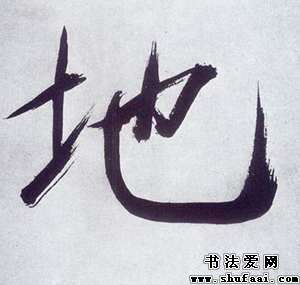 地
书法爱网
www.shufaai.com